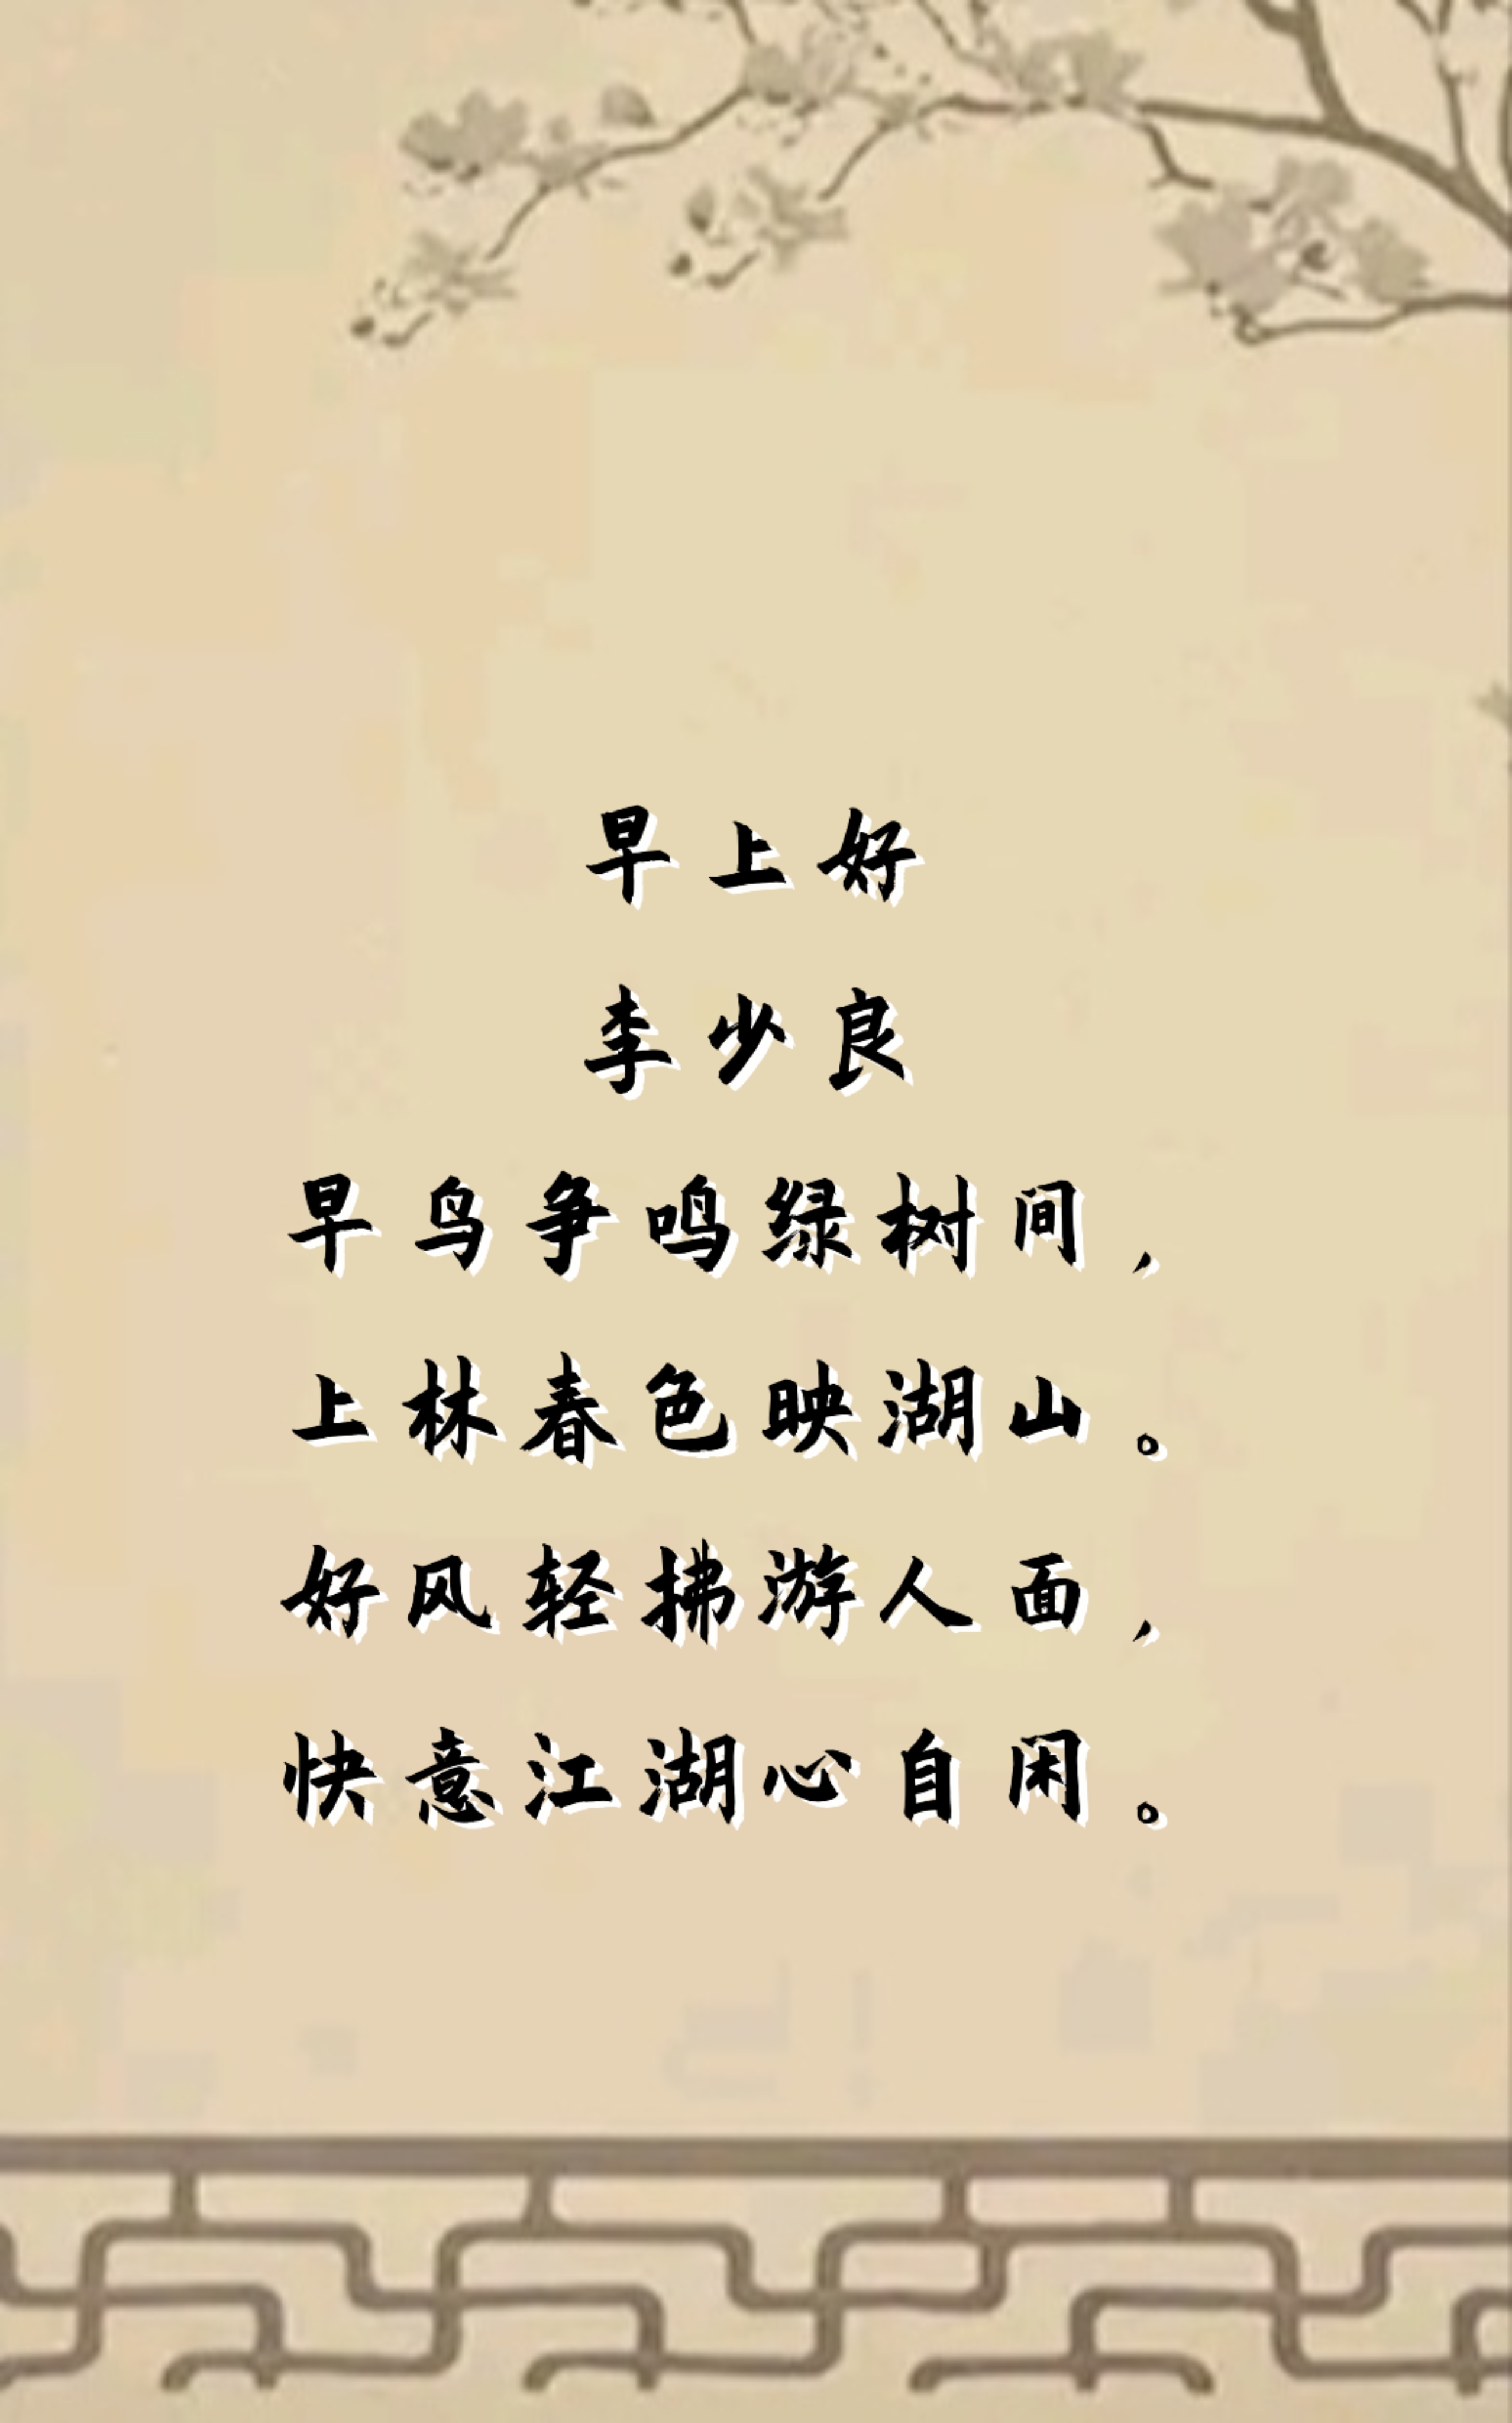 早上好
李少良
早鸟争鸣绿树间，
上林春色映湖山。
好风轻拂游人面，
快意江湖心自闲。